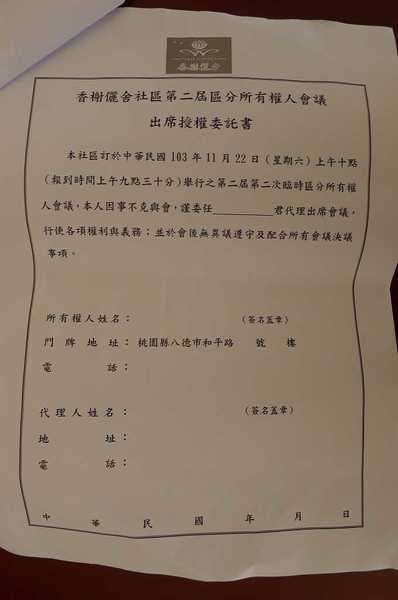 香榭儷舍社區第二屆區分所有權人會議
出席授權委託書
本社區訂於中華民國 103 年 11 月 22 日（星期六）上午十點
（報到時間上午九點三十分）舉行之第二屆第二次臨時區分所有權
人會議，本人因事不克與會，謹委任__________君代理出席會議，
行使各項權利與義務；並於會後無異議遵守及配合所有會議決議
事項。
所有權人姓名： （簽名蓋章）
門牌地址：桃園縣八德市和平路 號 樓
電話：
代理人姓名： （簽名蓋章）
地址：
電話：
中華民國年月日